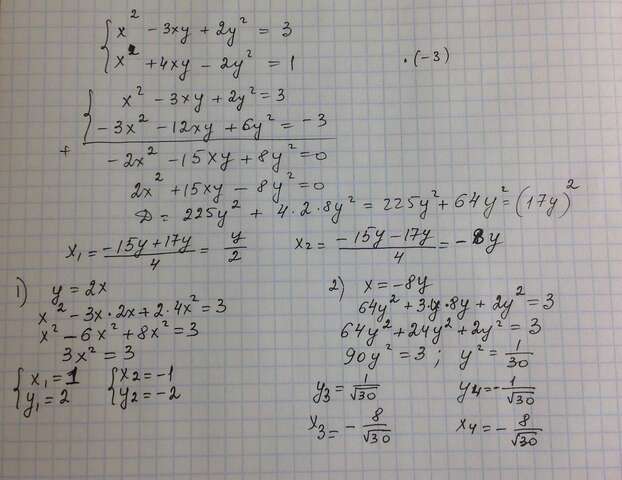 x² - 3xy + 2y² = 3
x² + 4xy - 2y² = 1 · (-3)
x² - 3xy + 2y² = 3
+ - 3x² - 12xy + 6y² = - 3
- 2x² - 15xy + 8y² = 0
2x² + 15xy - 8y² = 0
D = 225y² + 4·2·8y² = 225y² + 64y² = (17y)²
x₁ = (-15y + 17y)/4 = y/2 x₂ = (-15y - 17y)/4 = -8y
1) y = 2x
x² - 3x·2x + 2·4x² = 3
x² - 6x² + 8x² = 3
3x² = 3
{x₁ = 1 {x₂ = -1
y₁ = 2 y₂ = -2
2) x = -8y
64y² + 3y·8y + 2y² = 3
64y² + 24y² + 2y² = 3
90y² = 3; y² = 1/30
y₃ = 1/√30 y₄ = - 1/√30
x₃ = - 8/√30 x₄ = - 8/√30